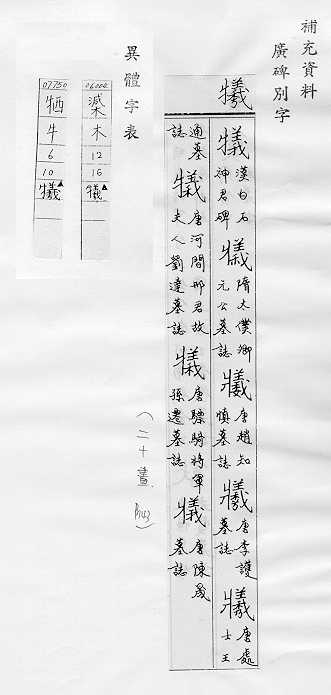 補充資料
廣碑別字
犧
犧 漢白石神君碑
犧 隋太僕卿元公墓誌
犧 唐趙知慎墓誌
犧 唐李護墓誌
犧 唐處士王
通墓誌
犧 唐河間邢君故夫人劉達墓誌
犧 唐驃騎將軍孫遷墓誌
犧 唐陳晟墓誌
(二十畫
異體字表
06004
木
12
16
犧▲
07750
牺
牛
6
10
犧▲